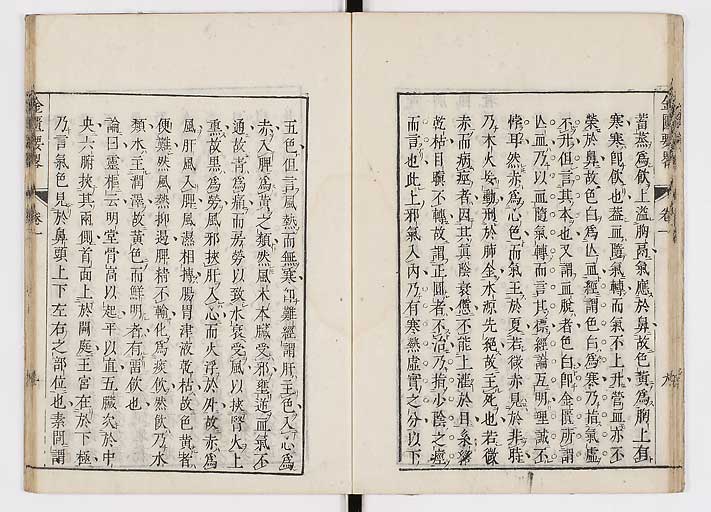 蓄蒸爲飲上溢胸膈氣應於鼻故色黃爲胸上有
寒寒卽飲也葢血隨氣轉而氣不上升當血亦不
榮於鼻故色白爲亾血經謂色白爲寒乃指氣虛
不升但言其本也又謂血脫者色白卽金匱所謂
亾血乃以血隨氣轉而言其標經論互明理誠不
悖耳然赤爲心色而氣王於夏若微赤見於非時
乃木火妄動刑於肺金水源先絕故主死也若微
赤而病痙者因其眞陰衰憊不能上灌於目系
乾枯目瞋不轉故謂正圓者不治乃指少陰之痙
而言也此上邪氣入內乃有寒熱虛實之分以下
五色但言風熱而無寒卽難經謂肝主色入心爲
赤入脾爲黃之類然風木本臟受邪壅逆血氣不
通故靑爲痛而房勞以致水衰受風以挾腎火上
熏故黑爲勞風邪挾肝入心而火浮於外故赤爲
風肝風入脾風濕相摶腸胃津液乾枯故色黃者
便難然風熱抑遏脾精不輸化爲痰飲然飲乃水
類水主潤澤故黃色而鮮明者有留飲也
論曰靈樞云明堂骨高以起平以直五臟次於中
央六腑挾其兩側首面上於闕庭王宮在於下極
乃言氣色見於鼻頭上下左右之部位也素問謂
金匱要畧
卷一
九
金匱要畧
卷一